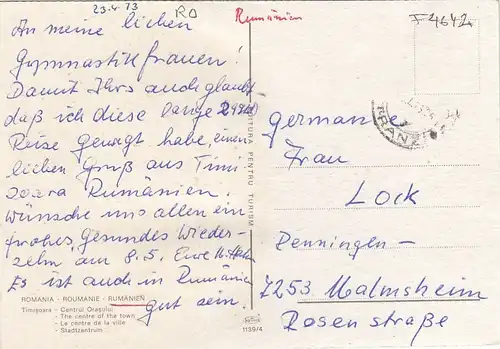 23.4.73
RO
Rumänien
F 4642
An meine lieben
Gymnastikfrauen!
Damit Ihrs auch glaubt
daß ich diese lange
Reise gewagt habe, einen
lieben Gruß aus Timi
soara Rumänien.
Wünsche uns allen ein
frohes, gesundes Wieder-
sehn am 8.5. Eure
Es ist auch in Rumänien
gut sein
ROMANIA - ROUMANIE - RUMÄNIEN
Timişoara - Centrul Oraşului
- The centre of the town
- Le centre de la ville
- Stadtzentrum
EDITURA PENTRU TURISM
1139/4
Germane
Frau
Lock
Renningen -
7253 Malmsheim
Rosenstraße